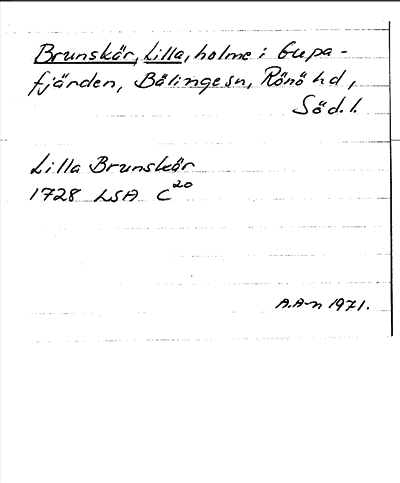 Brunskär, Lilla, holme i Gupa-
fjärden, Bälinge sn, Rönö hd,
Söd. l.
Lilla Brunskär
1728 LSA C20
A.A-n 1971.